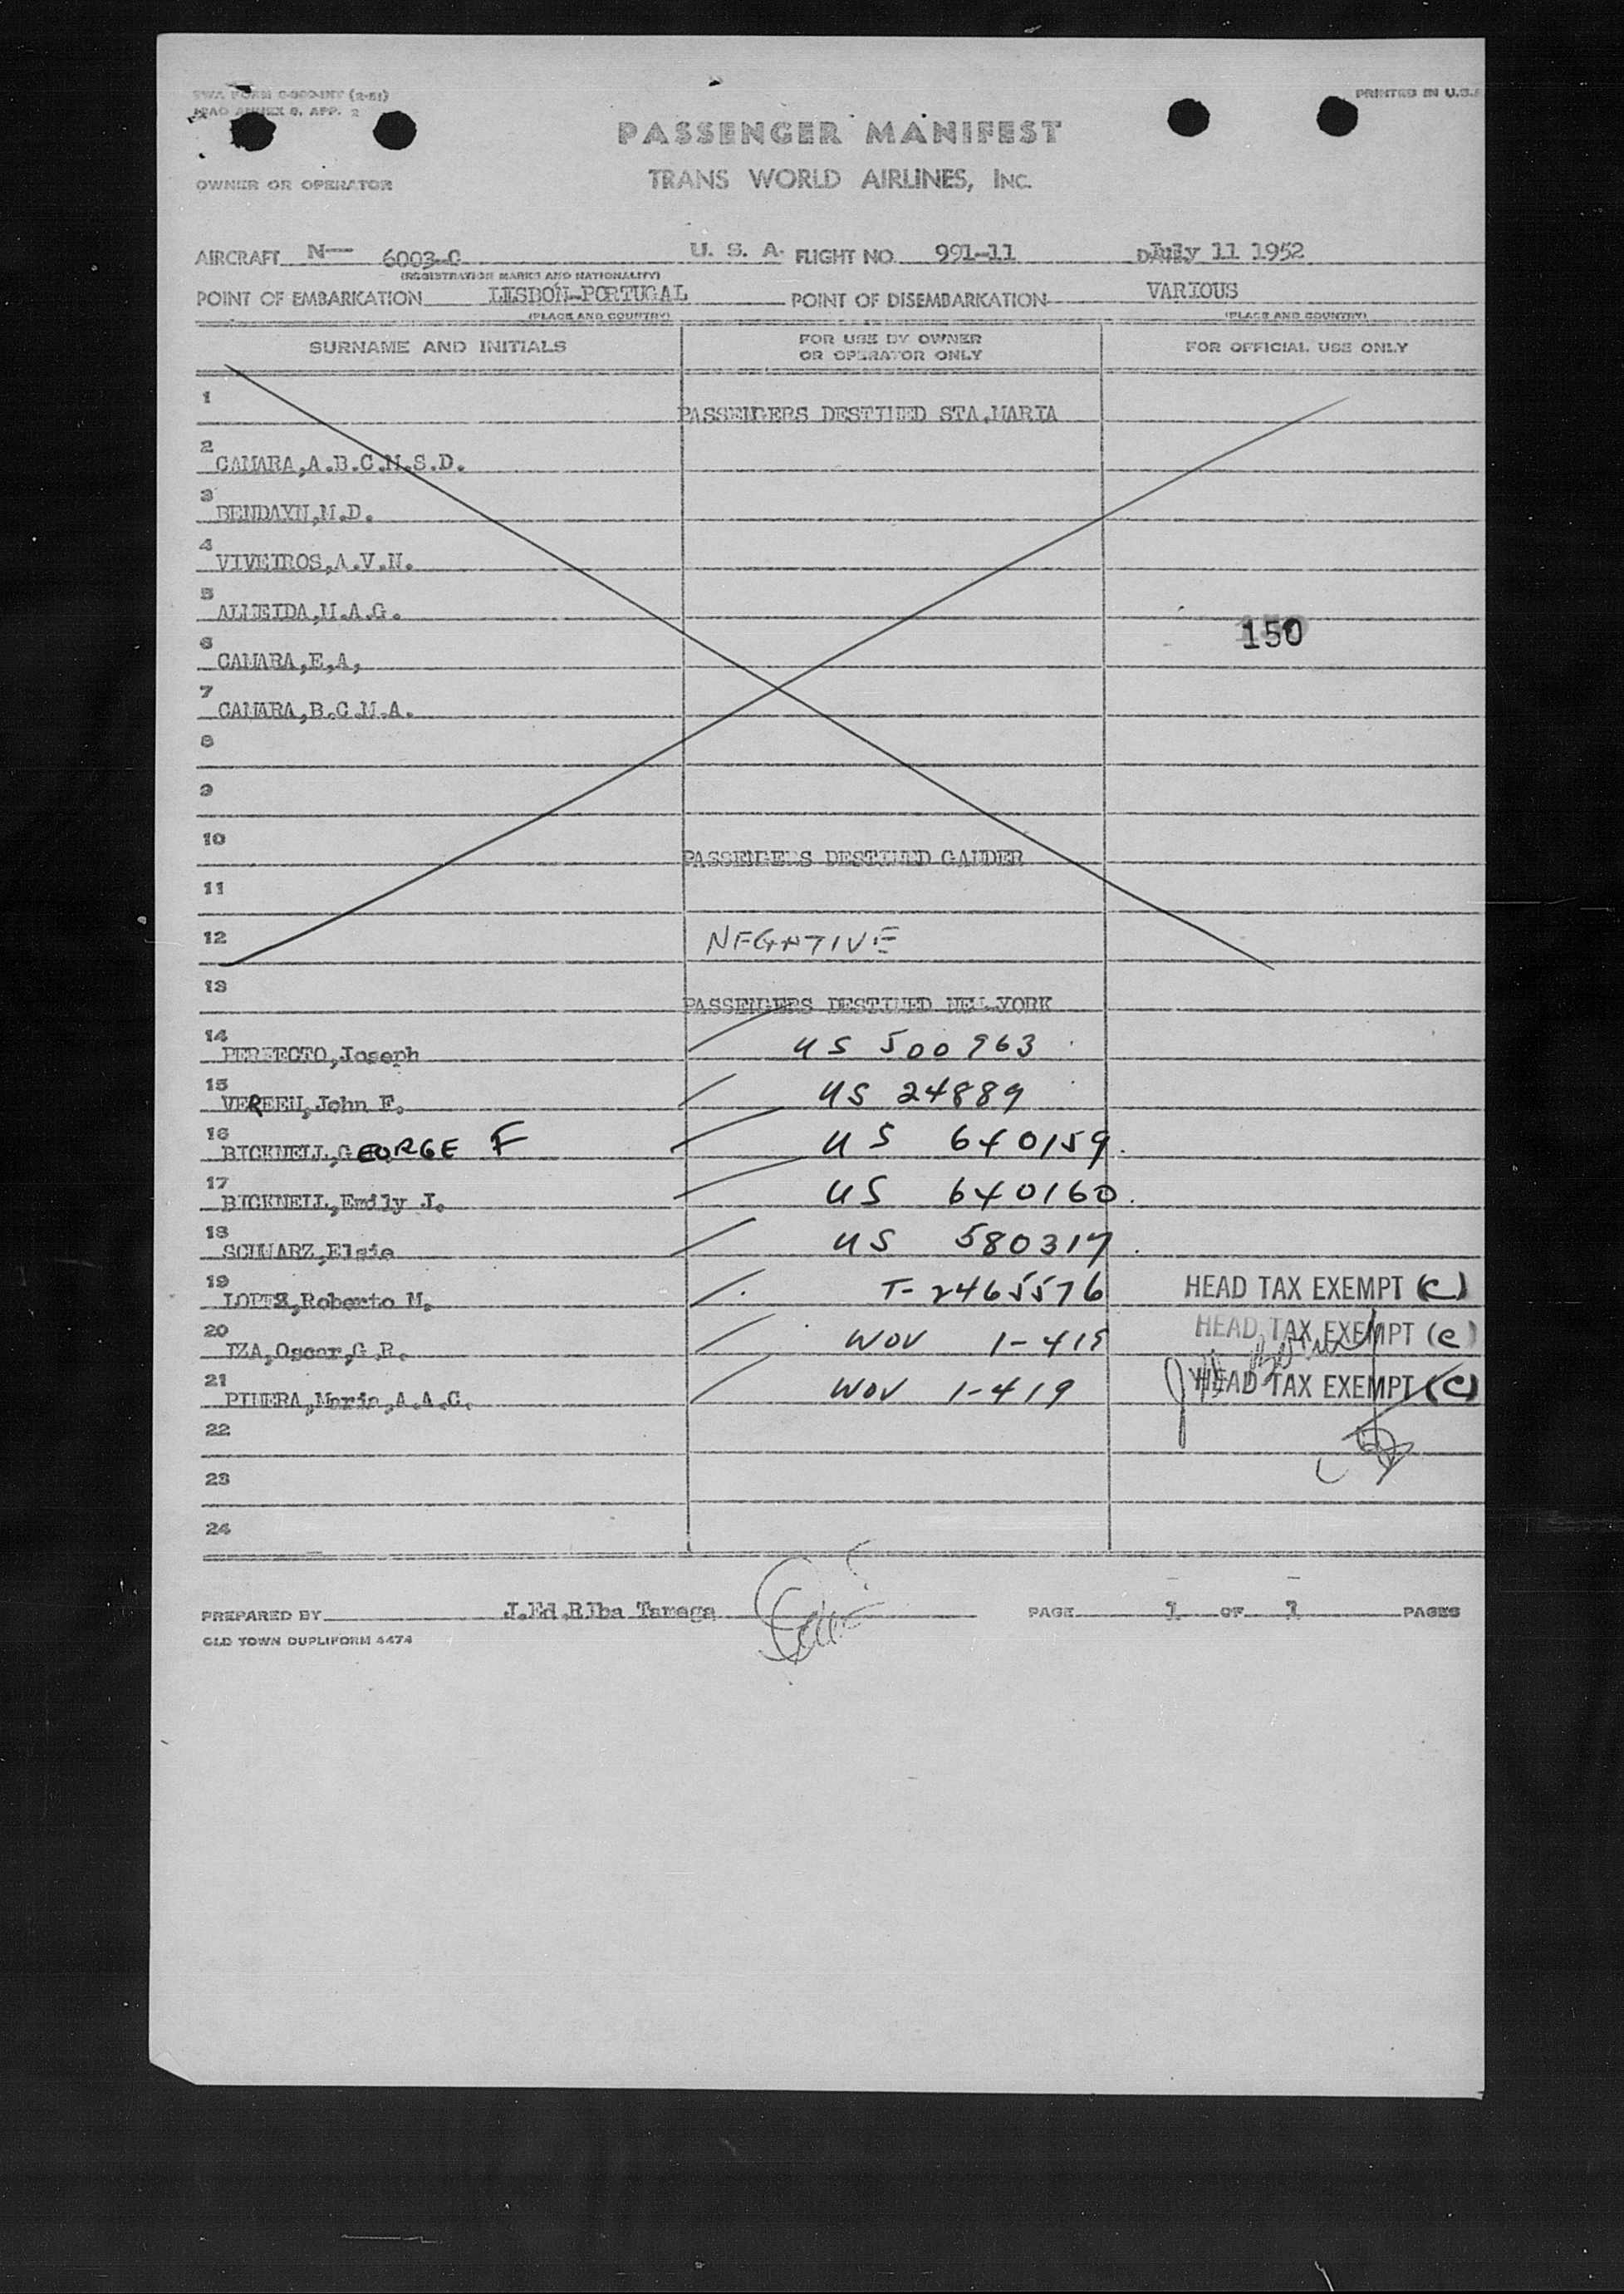 TWA FORM C-900-INT (2-51)
PRINTED IN U.S.A
ICAO ANNEX 9, APP. 2
PASSENGER MANIFEST
OWNER OR OPERATOR
TRANS WORLD AIRLINES, INC.
AIRCRAFT N— 6003-C U. S. A. FLIGHT NO. 991-11 July 11 1952
(REGISTRATION MARKS AND NATIONALITY)
POINT OF EMBARKATION LISBON-PORTUGAL POINT OF DISEMBARKATION VARIOUS
(PLACE AND COUNTRY) (PLACE AND COUNTRY)
SURNAME AND INITIALS FOR USE BY OWNER OR OPERATOR ONLY FOR OFFICIAL USE ONLY
1 PASSENGERS DESTINED STA.MARIA
2 CAMARA,A.B.C.M.S.D.
3 BENDAYN,M.D.
4 VIVEIROS,A.V.N.
5 ALMEIDA,M.A.G.
150
6 CAMARA,E,A,
7 CAMARA,B.C.M.A.
8
9
10 PASSENGERS DESTINED GANDER
11
12 NEGATIVE
13 PASSENGERS DESTINED NEW.YORK
14 PERFECTO,Joseph US 500963
15 VEREEN,John F. US 24889
16 BICKNELL,GEORGE F US 640159
17 BICKNELL,Emily J. US 640160
18 SCHWARZ,Elsie US 580317
19 LOPEZ,Roberto M. T-2465576 HEAD TAX EXEMPT (C)
20 IZA,Oscar,G.R. WOV 1-415 HEAD TAX EXEMPT (e)
21 PINERA,Maria,A.A.C. WOV 1-419 HEAD TAX EXEMPT (C)
22
23
24
PREPARED BY J.Ed.Elba Tamega PAGE 1 OF 1 PAGES
OLD TOWN DUPLIFORM 4474